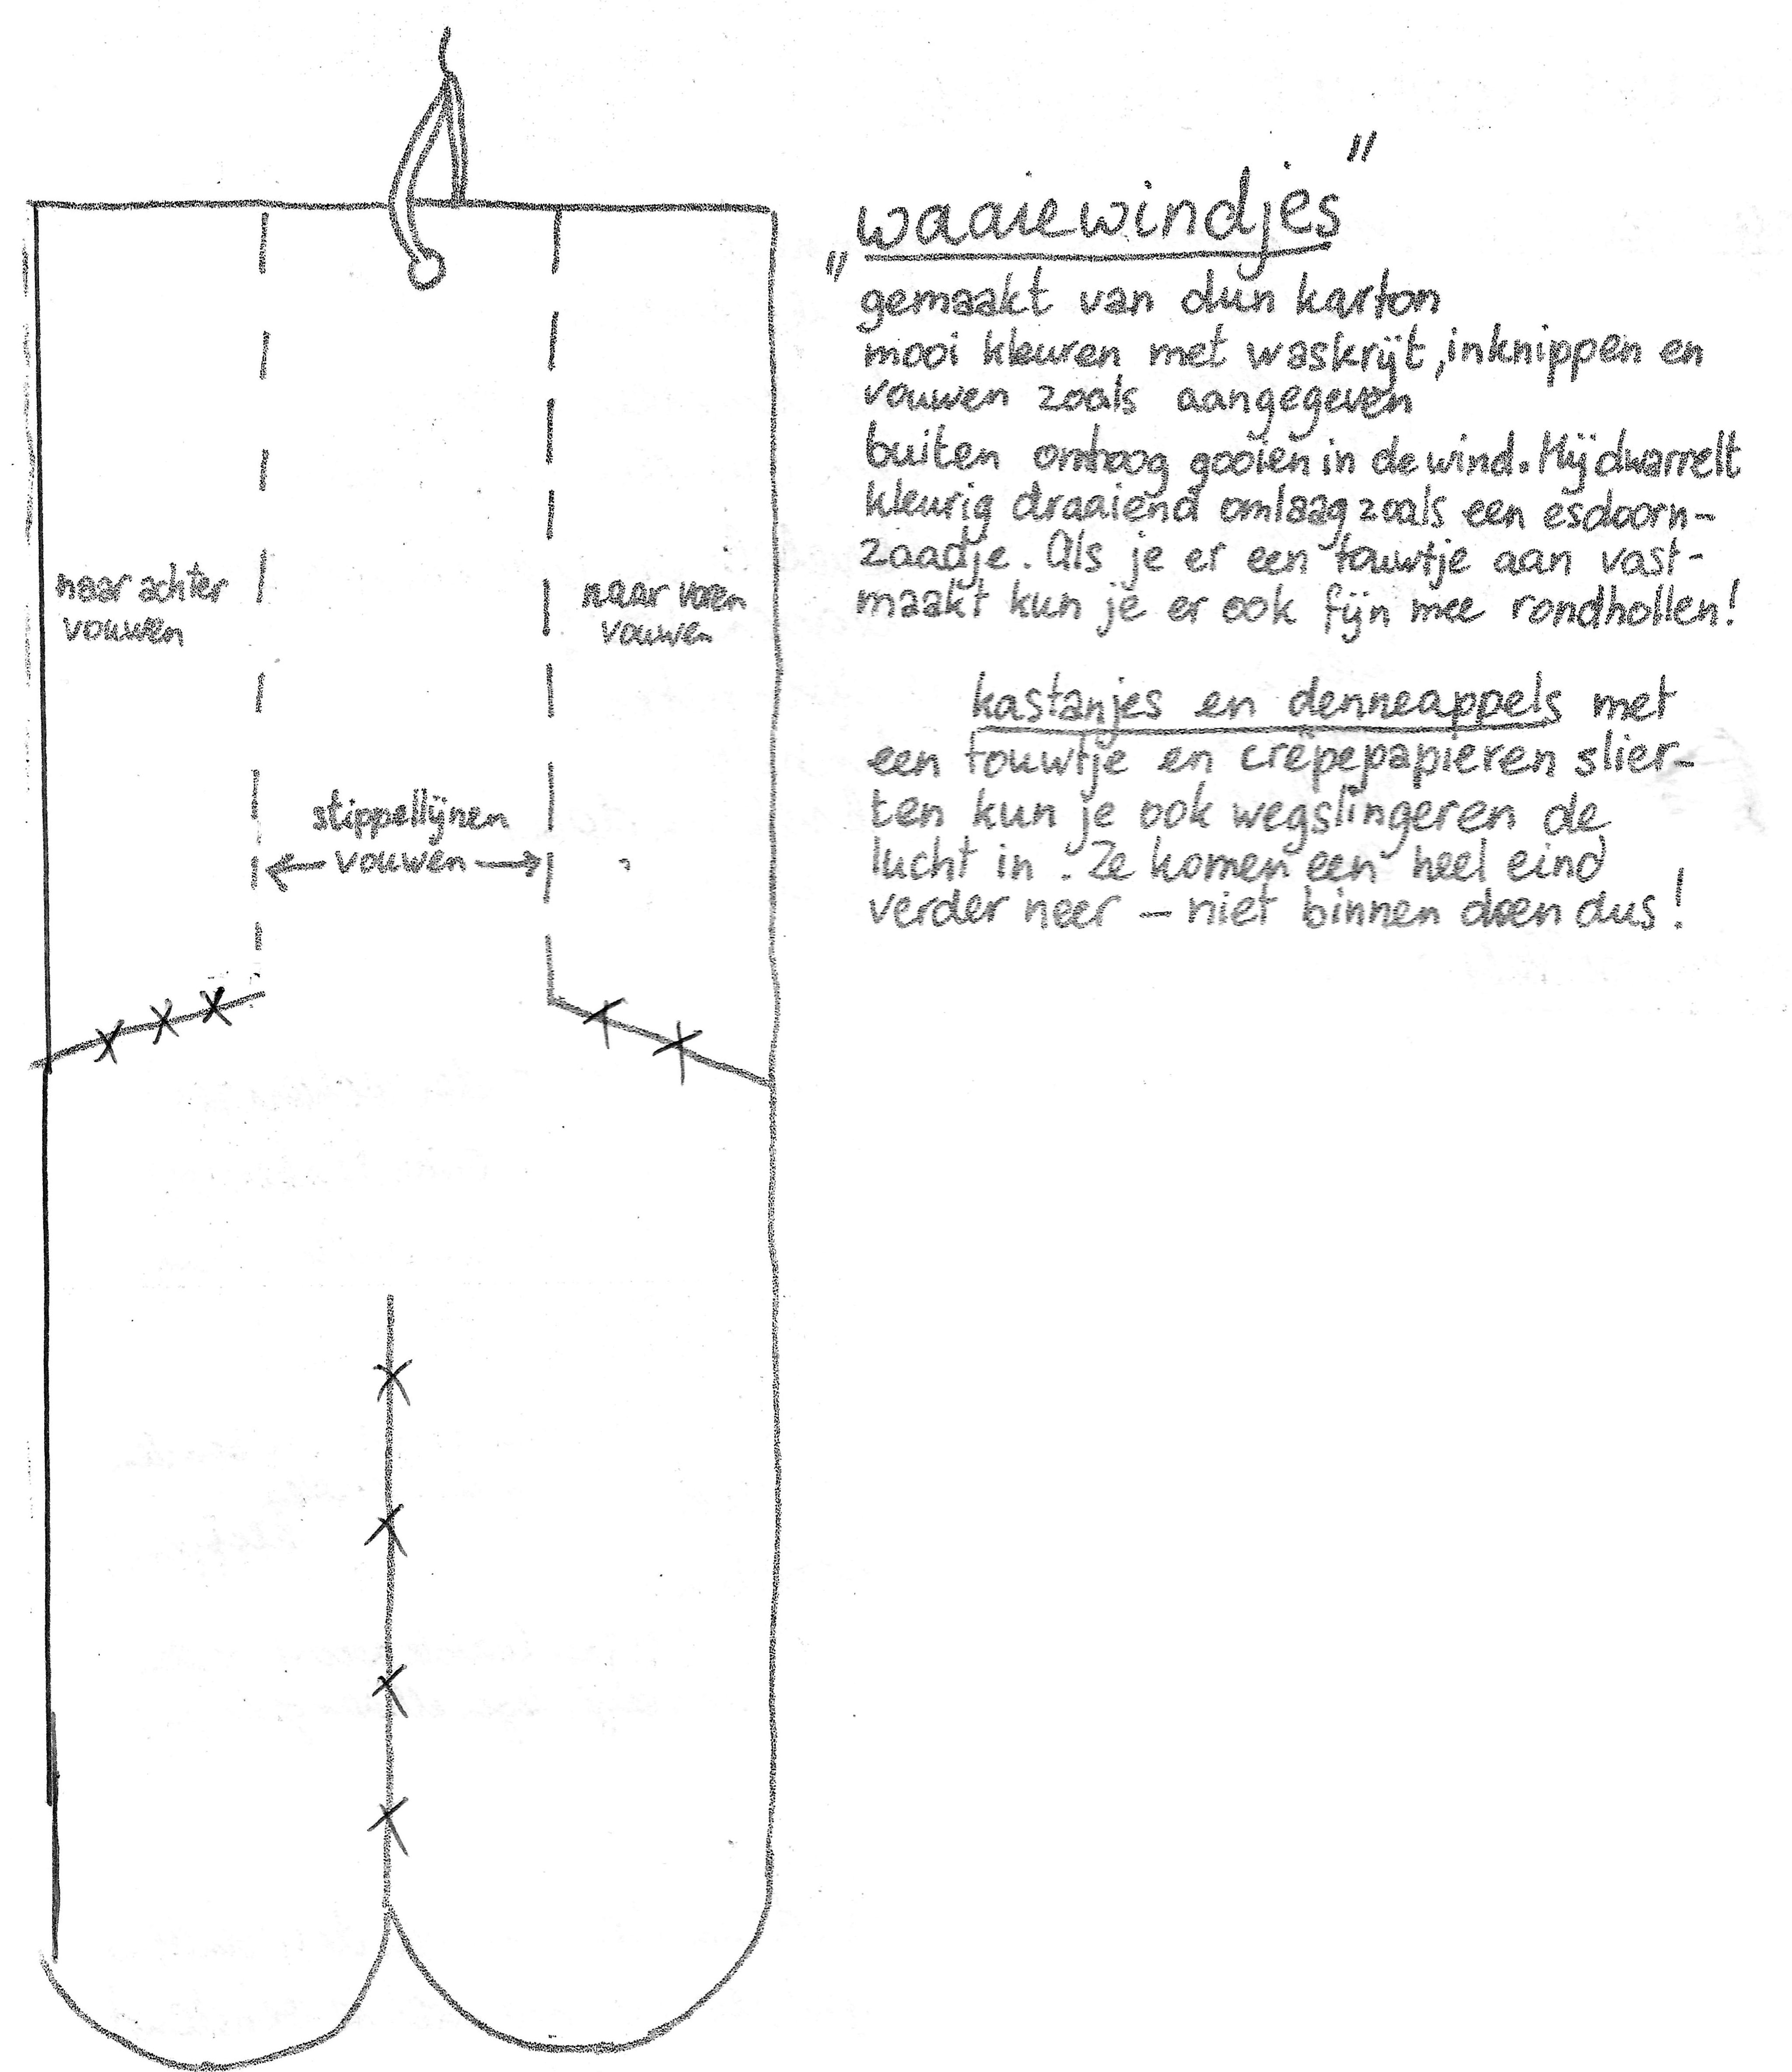 "waaiewindjes"
gemaakt van dun karton
mooi kleuren met waskrijt, inknippen en
vouwen zoals aangegeven
buiten omhoog gooien in de wind. Hij dwarrelt
kleurig draaiend omlaag zoals een esdoorn-
zaadje. Als je er een touwtje aan vast-
maakt kun je er ook fijn mee rondhollen!
kastanjes en denneappels met
een touwtje en crêpepapieren slier-
ten kun je ook wegslingeren de
lucht in. Ze komen een heel eind
verder neer – niet binnen doen dus!
naar achter
vouwen
naar voren
vouwen
stippellijnen
vouwen